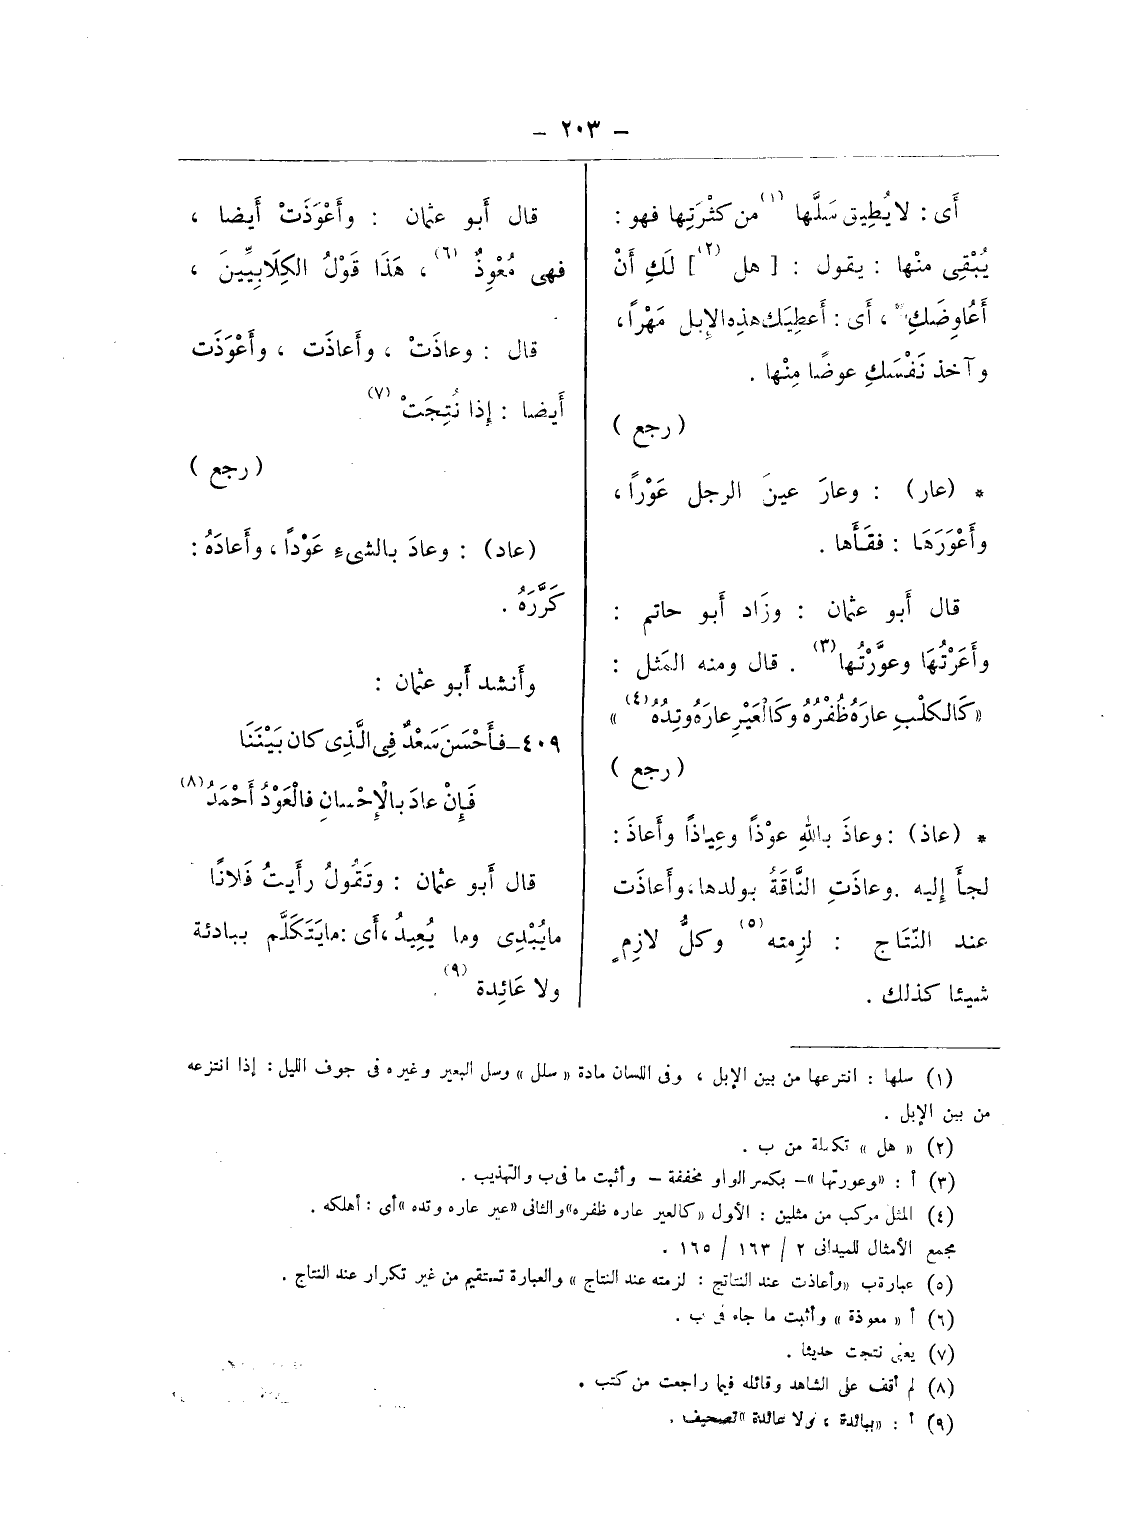 – ٢٠٣ –
أَى : لا يُطِيق سَلَّها (١) من كثْرَتِها فهو :
يُبْقِى منْها : يقول : [ هل (٢) ] لَكِ أَنْ
أَعُاوِضَكِ ، أَى : أَعطِيَك هذِه الإِبل مَهْراً ،
وآخذ نَفْسَكِ عوضًا مِنْها .
( رجع )
* (عار) : وعارَ عينَ الرجل عَوْراً ،
وأَعْوَرَهَا : فقَأَها .
قال أَبو عثمان : وزَاد أَبو حاتم :
وأَعَرْتُهَا وعوَّرْتُها (٣) . قال ومنه المَثل :
« كَالكلْبِ عارَهُ ظُفْرُهُ وكَالْعَيْرِ عارَهُ وتِدُهُ (٤) »
( رجع )
* (عاذ) : وعاذَ باللهِ عوْذاً وعِياذاً وأَعاذَ :
لجأَ إليه . وعاذَتِ النَّاقَةُ بولدها ، وأَعاذَت
عند النّتَاج : لزِمته (٥) وكلُّ لازِمٍ
شيئا كذلك .
قال أَبو عثمان : وأَعْوَذَتْ أَيضا ،
فهى مُعْوِذٌ (٦) ، هَذَا قَوْلُ الكِلَابِيِّينَ ،
قال : وعاذَتْ ، وأَعاذَت ، وأَعْوَذَت
أَيضا : إِذا نُتِجَتْ (٧) .
( رجع )
(عاد) : وعادَ بالشىءِ عَوْداً ، وأَعادَهُ :
كَرَّرَهُ .
وأَنشد أَبو عثمان :
٤٠٩ – فأَحْسَنَ سَعْدٌ فِى الَّذِى كان بَيْنَنَا
فَإِنْ عادَ بالْإِحْسانِ فالْعَوْدُ أَحْمَدُ (٨)
قال أَبو عثمان : وتَقُولُ رأَيتُ فَلانًا
مايُبْدِى وما يُعِيدُ ، أَى : مايَتَكَلَّم ببادئة
ولا عَائِدة (٩) .
(١) سلها : انترعها من بين الإبل ، وفى اللسان مادة « سلل » وسل البعير وغيره فى جوف الليل : إذا انتزعه
من بين الإبل .
(٢) « هل » تكملة من ب .
(٣) أ : « وعورتها » – بكسر الواو مخففة – وأثبت ما فى ب والتهذيب .
(٤) المثل مركب من مثلين : الأول « كالعير عاره ظفره » والثانى « عير عاره وتده » أى : أهلكه .
مجمع الأمثال للميدانى ٢ / ١٦٣ / ١٦٥ .
(٥) عبارة ب « وأعاذت عند النتائج : لزمته عند النتاج » والعبارة تستقيم من غير تكرار عند النتاج .
(٦) أ « معوذة » وأثبت ما جاء فى ب .
(٧) يعنى نتجت حديثا .
(٨) لم أقف على الشاهد وقائله فيما راجعت من كتب .
(٩) أ : « ببائدة ، ولا عائدة » تصحيف .